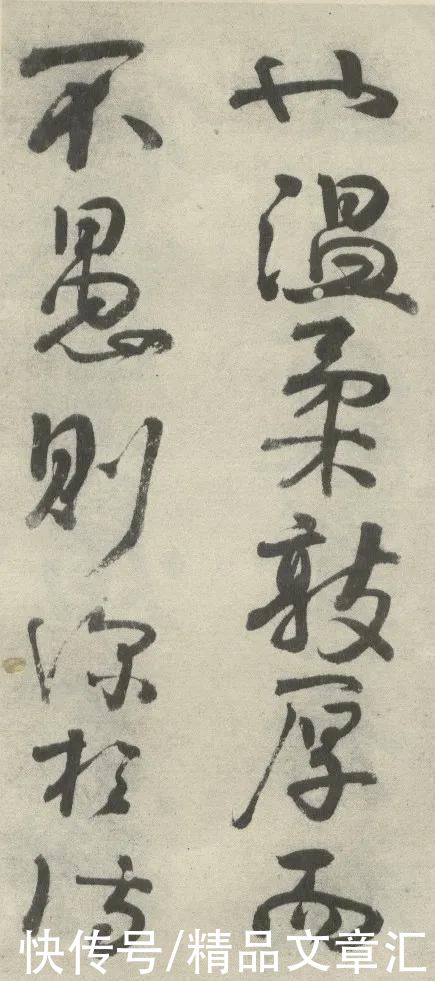 也温柔敦厚而
不愚則深於詩
快传号/精品文章汇